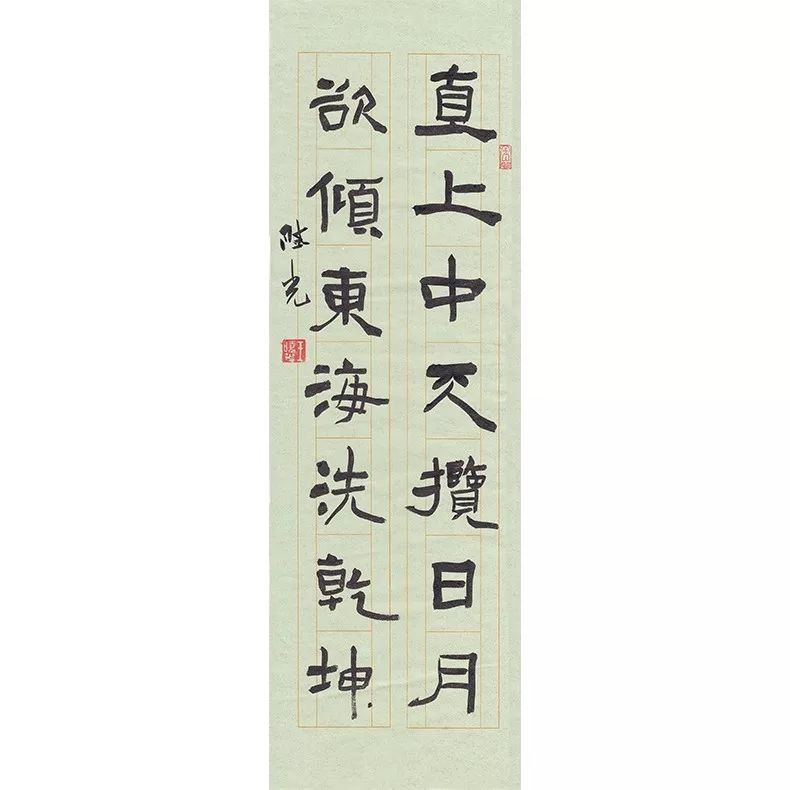 直上中天攬日月
欲傾東海洗乾坤